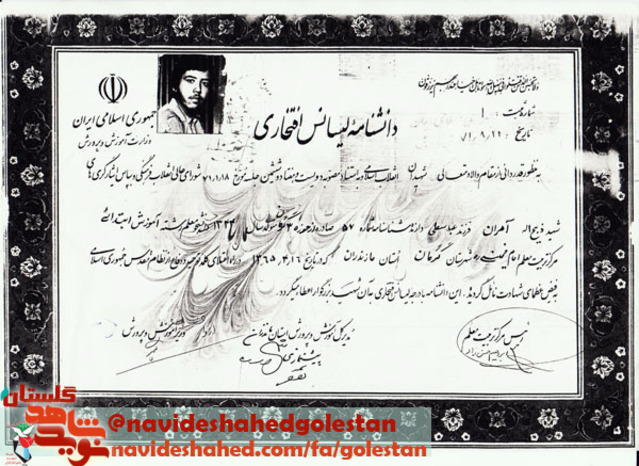 جمهوری اسلامی ایران
وزارت آموزش و پرورش
شماره ثبت: ۱
تاریخ: ۷۱,۹,۲۲
دانشنامه لیسانس افتخاری
به منظور قدردانی از مقام والا و متعالی شهیدان انقلاب اسلامی به استناد مصوبه دویست و هفتاد و ششمین جلسه مورخ ۷۱,۱,۱۸ شورای عالی انقلاب فرهنگی و بپاس ایثارگری های
شهید ذبیح اله آهران فرزند عباسعلی دارنده شناسنامه شماره ۵۷ صادره از حوزه متولد سال ۱۳۴۳ دانشجو معلم رشته آموزش ابتدائی
مرکز تربیت معلم امام خمینی شهرستان گرگان استان مازندران که در تاریخ ۱۳۶۵,۴,۱۶ در راه اعتلای کلمه توحید و دفاع از نظام مقدس جمهوری اسلامی
به فیض عظمای شهادت نائل گردید. این دانشنامه با درجه لیسانس افتخاری به آن شهید بزرگوار اعطا میگردد.
رئیس مرکز تربیت معلم
مدیر کل آموزش و پرورش استان مازندران
وزیر آموزش و پرورش
نوید شاهد گلستان
@navideshahedgolestan
navideshahed.com/fa/golestan